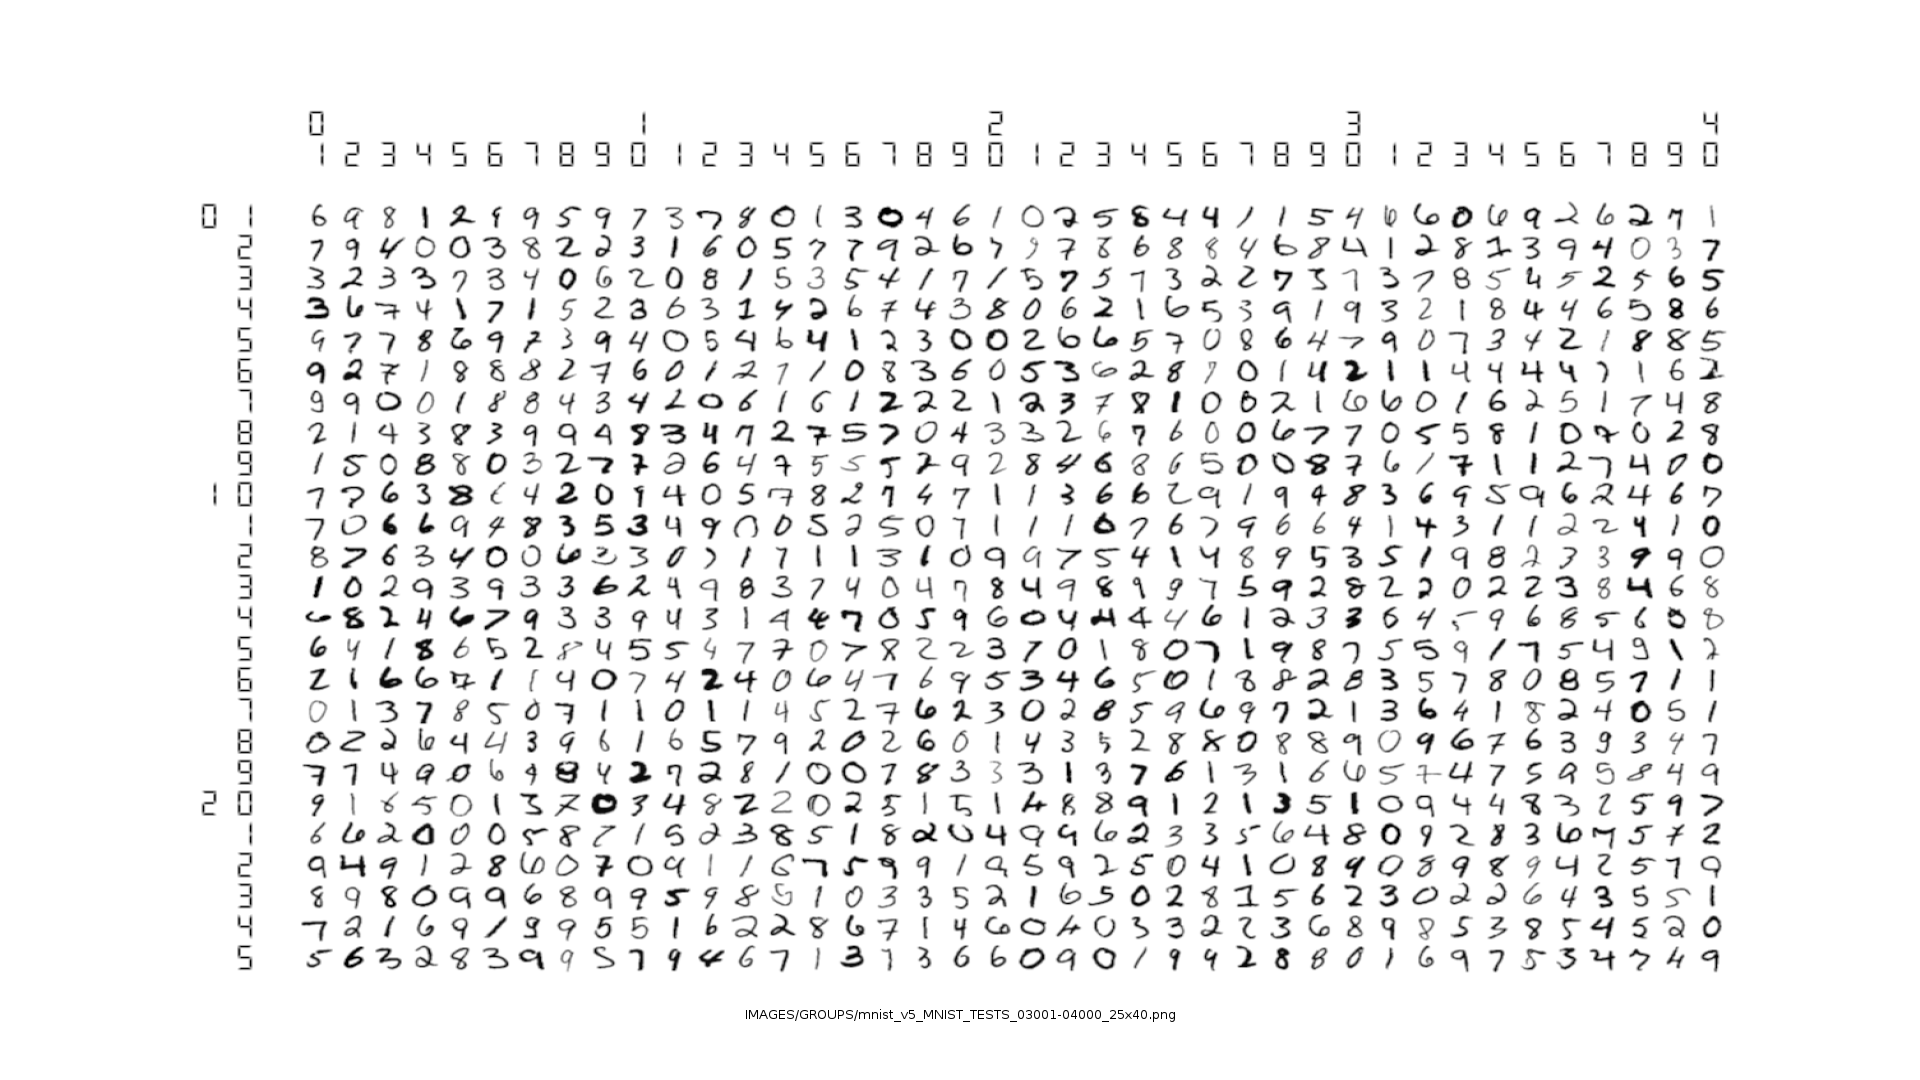 0 1 2 3 4
1 2 3 4 5 6 7 8 9 0 1 2 3 4 5 6 7 8 9 0 1 2 3 4 5 6 7 8 9 0 1 2 3 4 5 6 7 8 9 0
0 1 6 9 8 1 2 9 9 5 9 7 3 7 8 0 1 3 0 4 6 1 0 2 5 8 4 4 1 1 5 4 6 6 0 6 9 2 6 2 7 1
2 7 9 4 0 0 3 8 2 2 3 1 6 0 5 7 7 9 2 6 7 9 7 8 6 8 8 4 6 8 4 1 2 8 1 3 9 4 0 3 7
3 3 2 3 3 7 3 4 0 6 2 0 8 1 5 3 5 4 1 7 1 5 7 5 7 3 2 2 7 3 7 3 7 8 5 4 5 2 5 6 5
4 3 6 7 4 1 7 1 5 2 3 6 3 1 4 2 6 7 4 3 8 0 6 2 1 6 5 3 9 1 9 3 2 1 8 4 4 6 5 8 6
5 9 7 7 8 6 9 7 3 9 4 0 5 4 6 4 1 2 3 0 0 2 6 6 5 7 0 8 6 4 7 9 0 7 3 4 2 1 8 8 5
6 9 2 7 1 8 8 8 2 7 6 0 1 2 7 1 0 8 3 6 0 5 3 6 2 8 7 0 1 4 2 1 1 4 4 4 4 7 1 6 2
7 9 9 0 0 1 8 8 4 3 4 2 0 6 1 6 1 2 2 2 1 2 3 7 8 1 0 0 2 1 6 6 0 1 6 2 5 1 7 4 8
8 2 1 4 3 8 3 9 9 4 8 3 4 7 2 7 5 7 0 4 3 3 2 6 7 6 0 0 6 7 7 0 5 5 8 1 0 7 0 2 8
9 1 5 0 8 8 0 3 2 7 7 2 6 4 7 5 5 5 7 9 2 8 4 6 8 6 5 0 0 8 7 6 1 7 1 1 2 7 4 0 0
1 0 7 7 6 3 8 6 4 2 0 9 4 0 5 7 8 2 7 4 7 1 1 3 6 6 2 9 1 9 4 8 3 6 9 5 9 6 2 4 6 7
1 7 0 6 6 9 4 8 3 5 3 4 9 0 0 5 2 5 0 7 1 1 1 0 7 6 7 9 6 6 4 1 4 3 1 1 2 2 4 1 0
2 8 7 6 3 4 0 0 6 2 3 0 7 1 7 1 1 3 1 0 9 9 7 5 4 1 4 8 9 5 3 5 1 9 8 2 3 3 9 9 0
3 1 0 2 9 3 9 3 3 6 2 4 9 8 3 7 4 0 4 7 8 4 9 8 1 9 7 5 9 2 8 2 2 0 2 2 3 8 4 6 8
4 6 8 2 4 6 7 9 3 3 9 4 3 1 4 4 7 0 5 9 6 0 4 4 4 4 6 1 2 3 3 6 4 5 9 6 8 5 6 0 8
5 6 4 1 8 6 5 2 8 4 5 5 4 7 7 0 7 8 2 2 3 7 0 1 8 0 7 1 9 8 7 5 5 9 1 7 5 4 9 1 2
6 2 1 6 6 7 1 1 4 0 7 4 2 4 0 6 4 7 6 9 5 3 4 6 5 0 1 8 8 2 8 3 5 7 8 0 8 5 7 1 1
7 0 1 3 7 8 5 0 7 1 1 0 1 1 4 5 2 7 6 2 3 0 2 8 5 9 6 9 7 2 1 3 6 4 1 8 2 4 0 5 1
8 0 2 2 6 4 4 3 9 6 1 6 5 7 9 2 0 2 6 0 1 4 3 5 2 8 8 0 8 8 9 0 9 6 7 6 3 9 3 4 7
9 7 7 4 9 0 6 9 8 4 2 7 2 8 1 0 0 7 8 3 3 3 1 3 7 6 1 3 1 6 6 5 7 4 7 5 9 5 8 4 9
2 0 9 1 8 5 0 1 3 7 0 3 4 8 2 2 0 2 5 1 5 1 4 8 8 9 1 2 1 3 5 1 0 9 4 4 8 3 2 5 9 7
1 6 6 2 0 0 0 5 8 7 1 5 2 3 8 5 1 8 2 0 4 9 9 6 2 3 3 5 6 4 8 0 9 2 8 3 6 7 5 7 2
2 9 4 9 1 2 8 6 0 7 0 9 1 1 6 7 5 9 9 1 9 5 9 2 5 0 4 1 0 8 9 0 8 9 8 9 4 2 5 7 9
3 8 9 8 0 9 9 6 8 9 9 5 9 8 5 1 0 3 3 5 2 1 6 5 0 2 8 1 5 6 2 3 0 2 2 6 4 3 5 5 1
4 7 2 1 6 9 1 9 9 5 5 1 6 2 2 8 6 7 1 4 6 0 4 0 3 3 2 2 3 6 8 9 8 5 3 8 5 4 5 2 0
5 5 6 3 2 8 3 9 9 5 7 9 4 6 7 1 3 7 3 6 6 0 9 0 1 9 9 2 8 8 0 1 6 9 7 5 3 4 7 4 9
IMAGES/GROUPS/mnist_v5_MNIST_TESTS_03001-04000_25x40.png